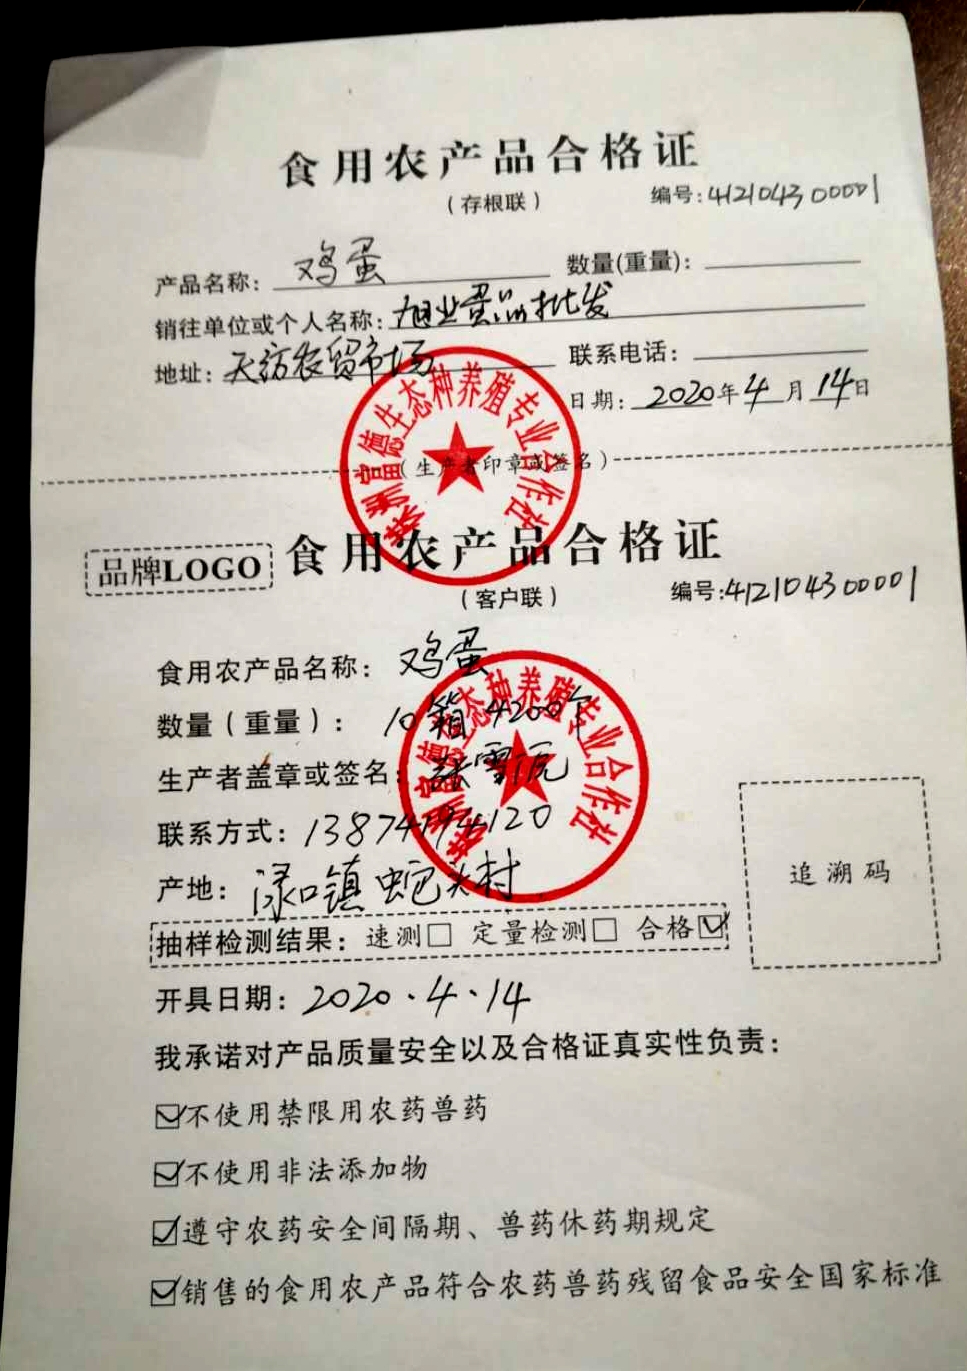 食用农产品合格证
(存根联)
编号:41210430 00001
产品名称: 鸡蛋 数量(重量):
销往单位或个人名称: 旭业蛋品批发
地址: 天纺农贸市场 联系电话:
日期: 2020年4月14日
株洲富德生态种养殖专业合作社
(生产者印章或签名)
品牌LOGO 食用农产品合格证
(客户联)
编号:4121043000001
食用农产品名称: 鸡蛋
数量(重量): 10箱 4200个
生产者盖章或签名:
富德生态种养殖专业合作社
联系方式: 13874194120
产地: 渌口镇 蛇头村
抽样检测结果: 速测□ 定量检测□ 合格☑
追溯码
开具日期: 2020.4.14
我承诺对产品质量安全以及合格证真实性负责:
☑不使用禁限用农药兽药
☑不使用非法添加物
☑遵守农药安全间隔期、兽药休药期规定
☑销售的食用农产品符合农药兽药残留食品安全国家标准